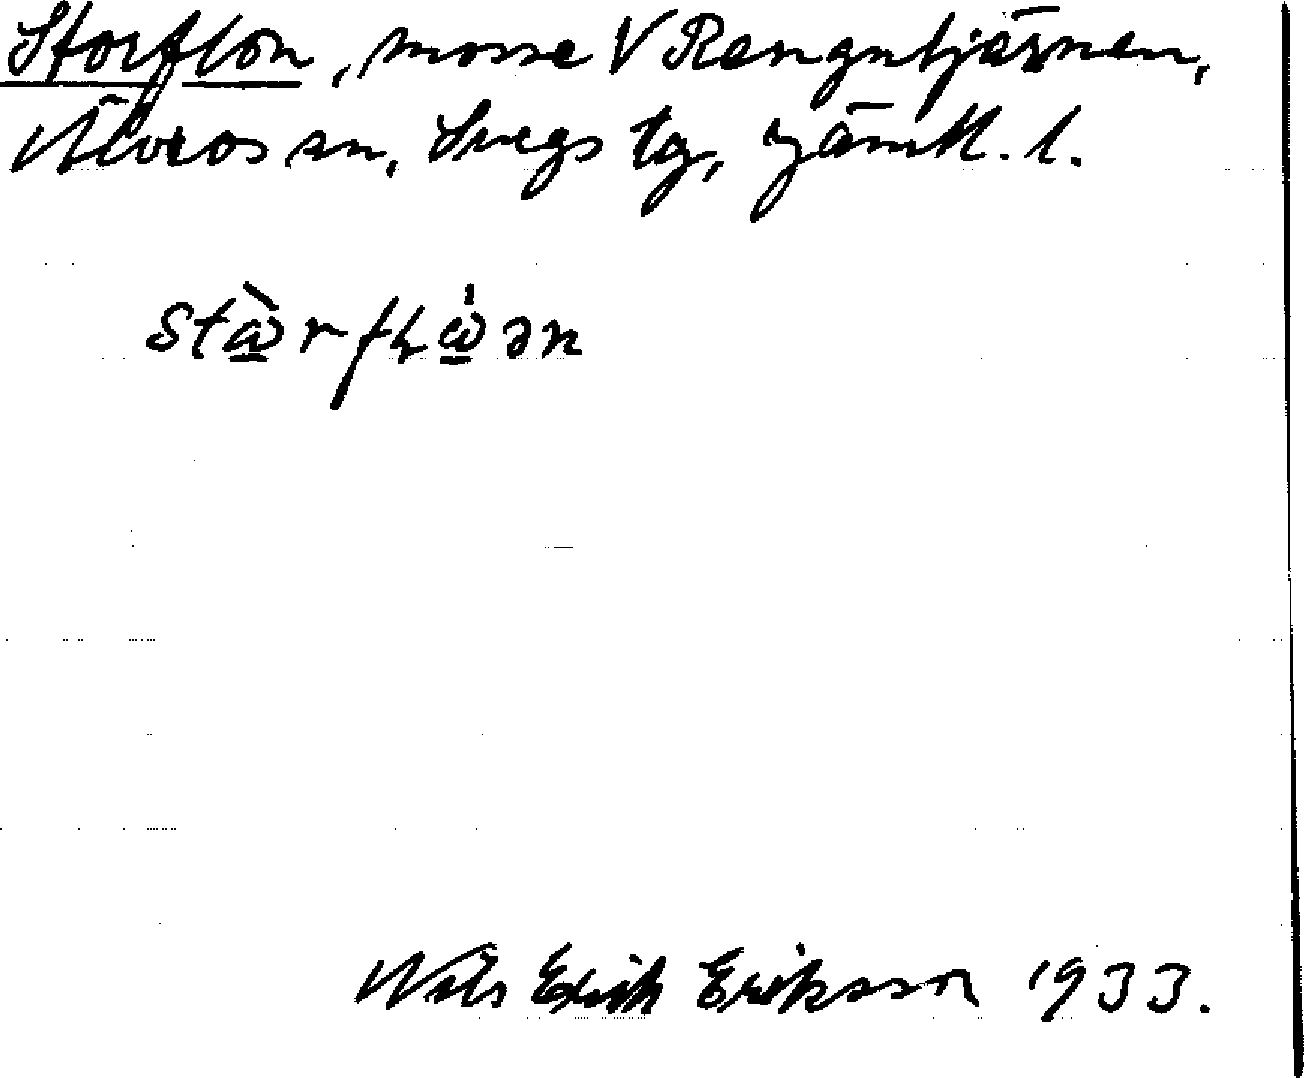 Storflon, mosse V Rengstjärnen,
Älvros sn, Svegs tg, Jämtl. l.
Nils Erik Eriksson 1933.